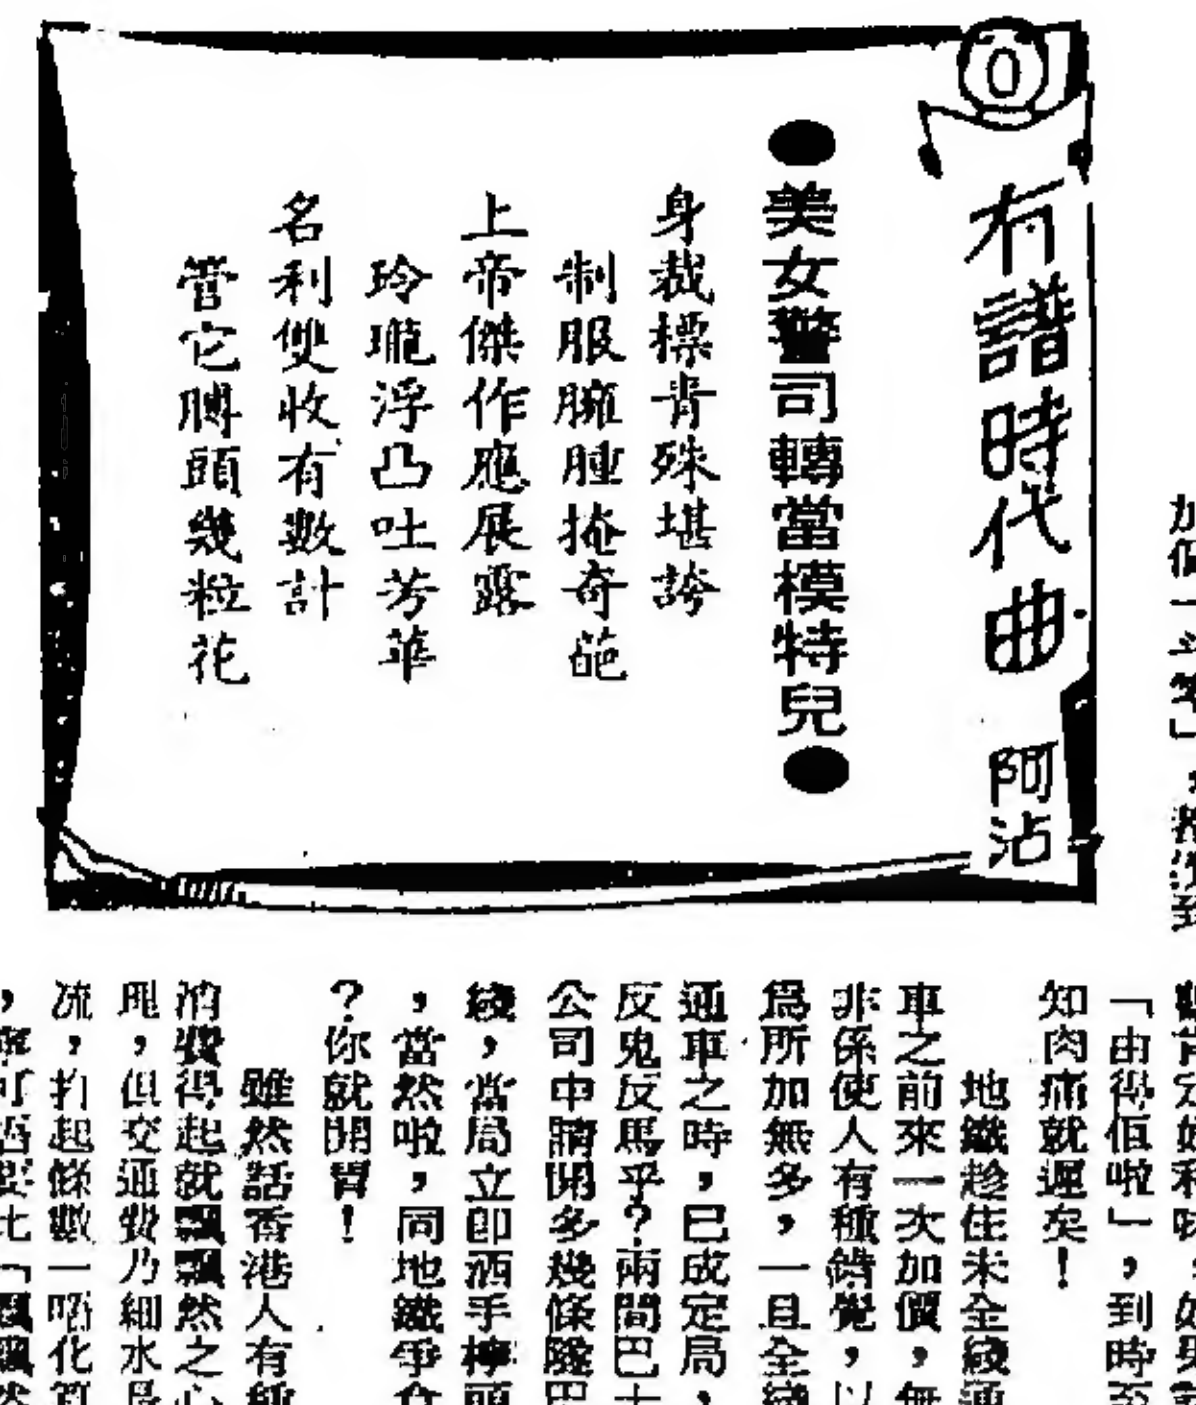 有譜時代曲
阿沾
●美女警司轉當模特兒●
身裁標青殊堪誇
制服臃腫掩奇葩
上帝傑作應展露
玲瓏浮凸吐芳華
名利雙收有數計
管它膊頭幾粒花
「由得佢啦」,到時至
知肉痛就遲矣!
地鐵趁住未全綫通
車之前來一次加價,無
非係使人有種錯覺,以
爲所加無多,一旦全綫
通車之時,已成定局,
反鬼反馬乎?兩間巴士
公司申請開多幾條隧巴
綫,當局立即洒手擰頭
,當然啦,同地鐵爭食
?你就開胃!
雖然話香港人有種
消費得起就飄飄然之心
理,但交通費乃細水長
流,扚起條數一唔化算